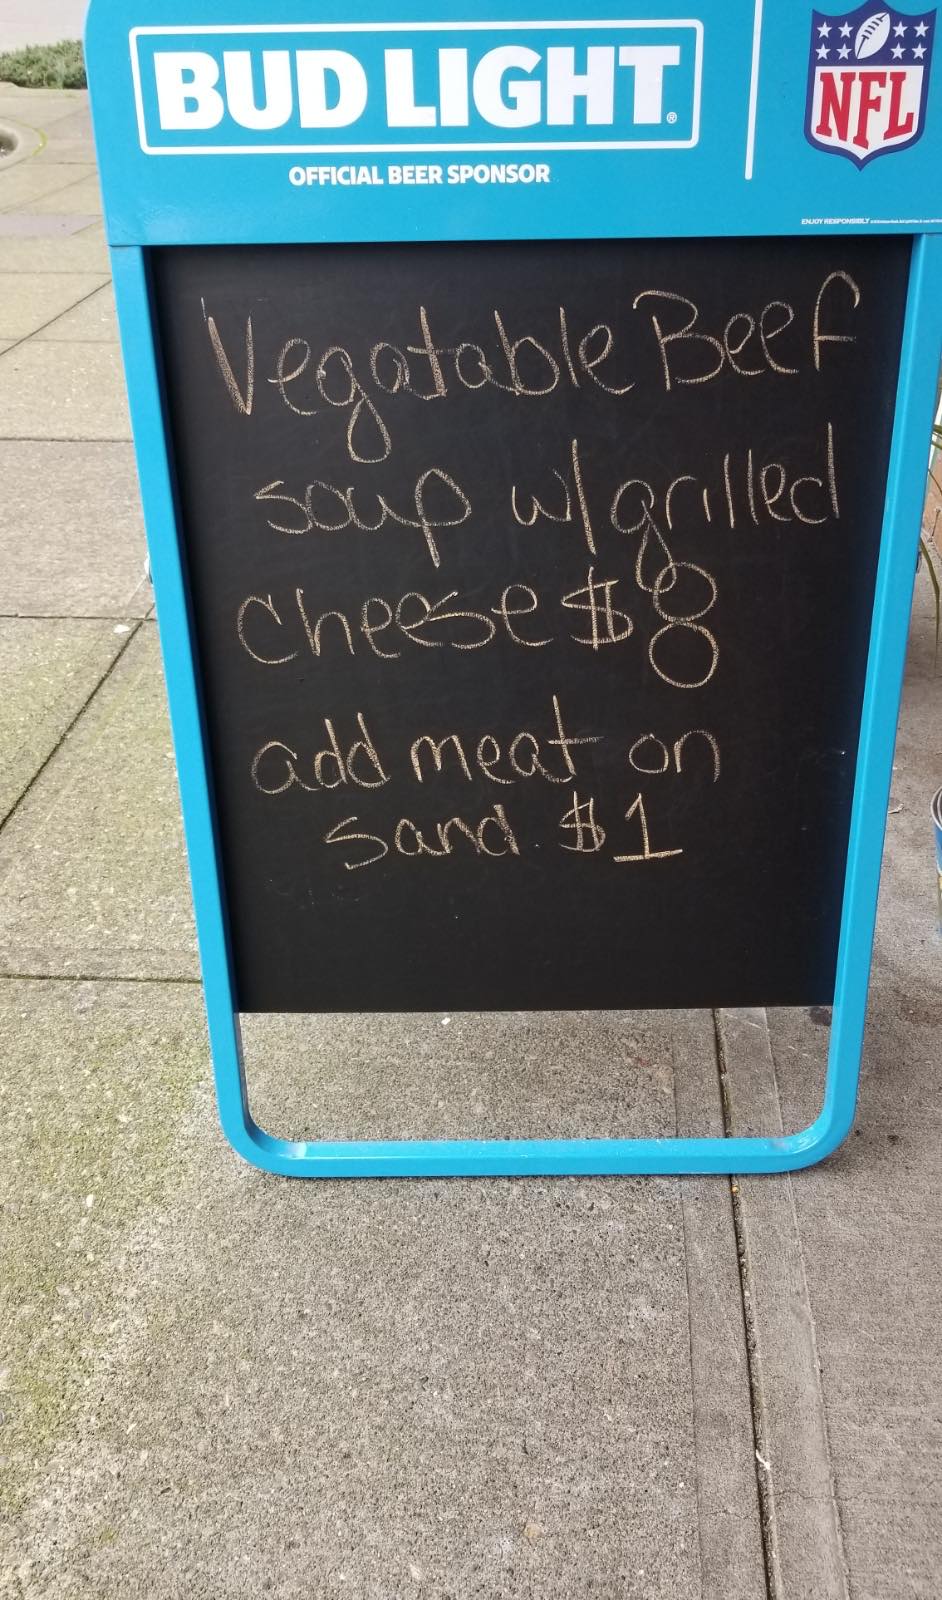 BUD LIGHT®
OFFICIAL BEER SPONSOR
NFL
ENJOY RESPONSIBLY
Vegatable Beef
soup w/grilled
Cheese $8
add meat on
sand. $1